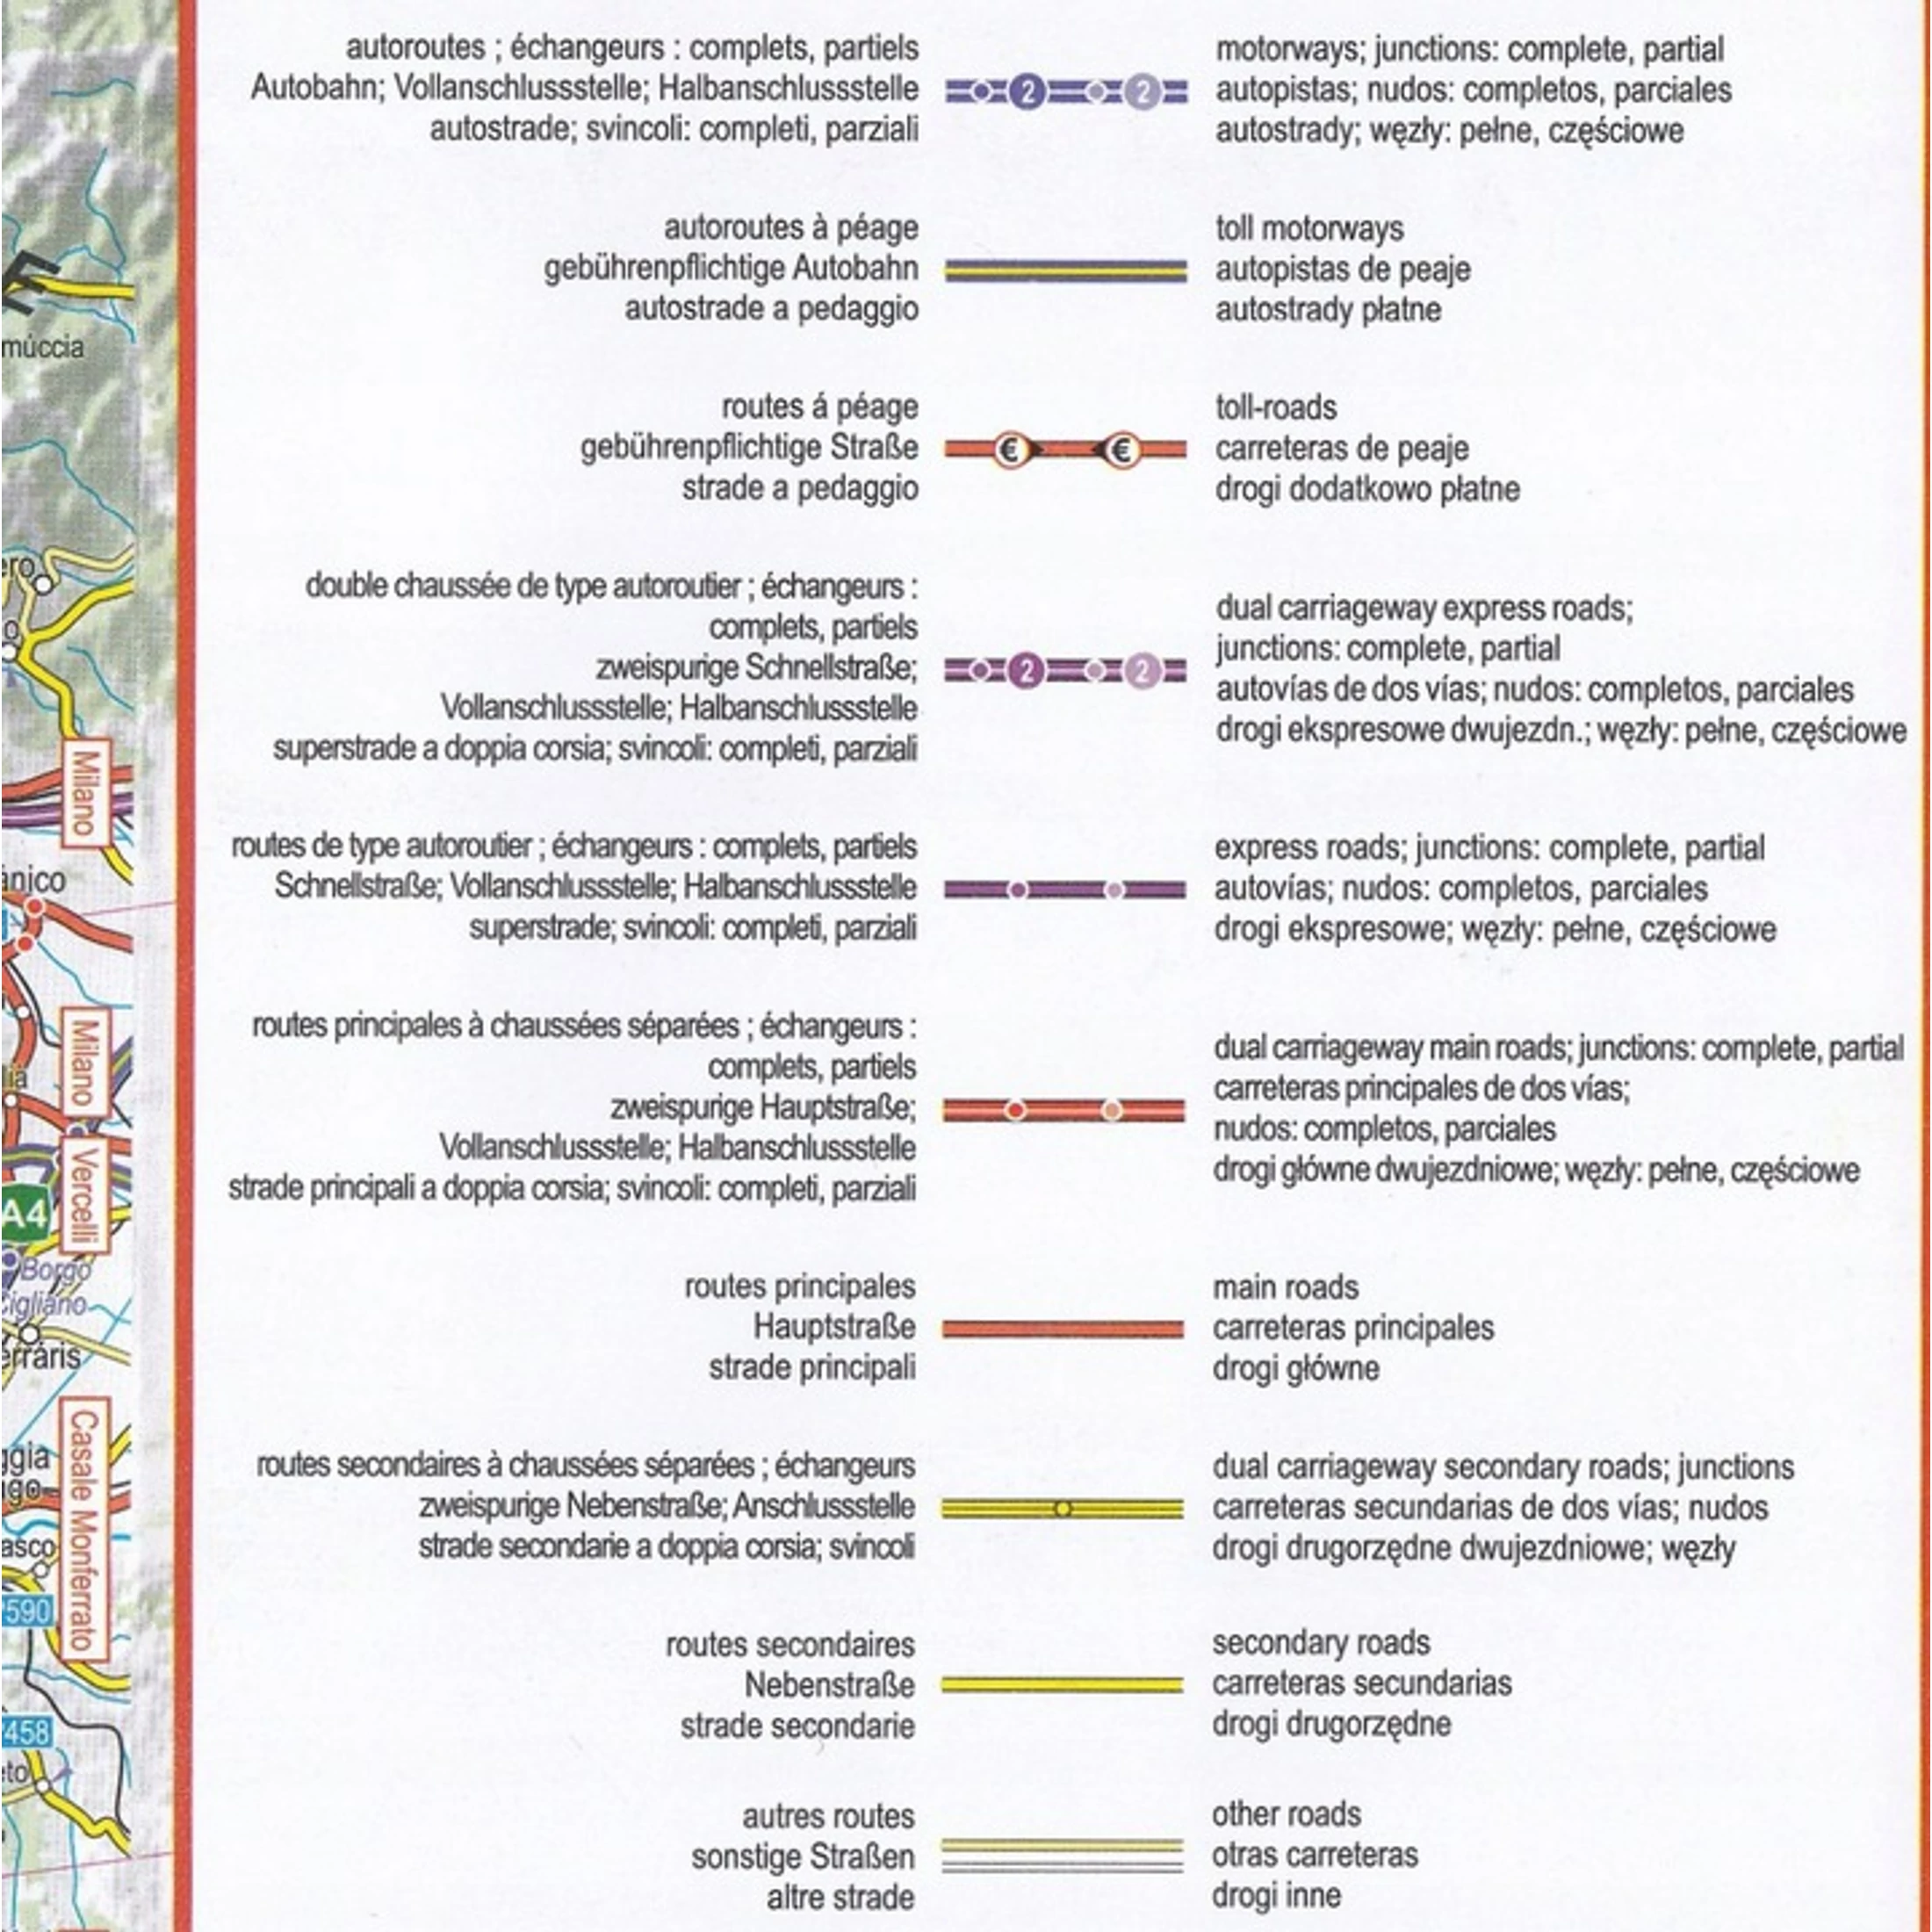 autoroutes ; échangeurs : complets, partiels
Autobahn; Vollanschlussstelle; Halbanschlussstelle
autostrade; svincoli: completi, parziali
2 2
motorways; junctions: complete, partial
autopistas; nudos: completos, parciales
autostrady; węzły: pełne, częściowe
autoroutes à péage
gebührenpflichtige Autobahn
autostrade a pedaggio
toll motorways
autopistas de peaje
autostrady płatne
routes á péage
gebührenpflichtige Straße
strade a pedaggio
€ €
toll-roads
carreteras de peaje
drogi dodatkowo płatne
double chaussée de type autoroutier ; échangeurs :
complets, partiels
zweispurige Schnellstraße;
Vollanschlussstelle; Halbanschlussstelle
superstrade a doppia corsia; svincoli: completi, parziali
2 2
dual carriageway express roads;
junctions: complete, partial
autovías de dos vías; nudos: completos, parciales
drogi ekspresowe dwujezdn.; węzły: pełne, częściowe
routes de type autoroutier ; échangeurs : complets, partiels
Schnellstraße; Vollanschlussstelle; Halbanschlussstelle
superstrade; svincoli: completi, parziali
express roads; junctions: complete, partial
autovías; nudos: completos, parciales
drogi ekspresowe; węzły: pełne, częściowe
routes principales à chaussées séparées ; échangeurs :
complets, partiels
zweispurige Hauptstraße;
Vollanschlussstelle; Halbanschlussstelle
strade principali a doppia corsia; svincoli: completi, parziali
dual carriageway main roads; junctions: complete, partial
carreteras principales de dos vías;
nudos: completos, parciales
drogi główne dwujezdniowe; węzły: pełne, częściowe
routes principales
Hauptstraße
strade principali
main roads
carreteras principales
drogi główne
routes secondaires à chaussées séparées ; échangeurs
zweispurige Nebenstraße; Anschlussstelle
strade secondarie a doppia corsia; svincoli
dual carriageway secondary roads; junctions
carreteras secundarias de dos vías; nudos
drogi drugorzędne dwujezdniowe; węzły
routes secondaires
Nebenstraße
strade secondarie
secondary roads
carreteras secundarias
drogi drugorzędne
autres routes
sonstige Straßen
altre strade
other roads
otras carreteras
drogi inne
múccia
ero
Milano
ánico
Milano
Vercelli
A4
Borgo
Cigliano
erráris
Casale Monferrato
ggia
asco
590
458
eto